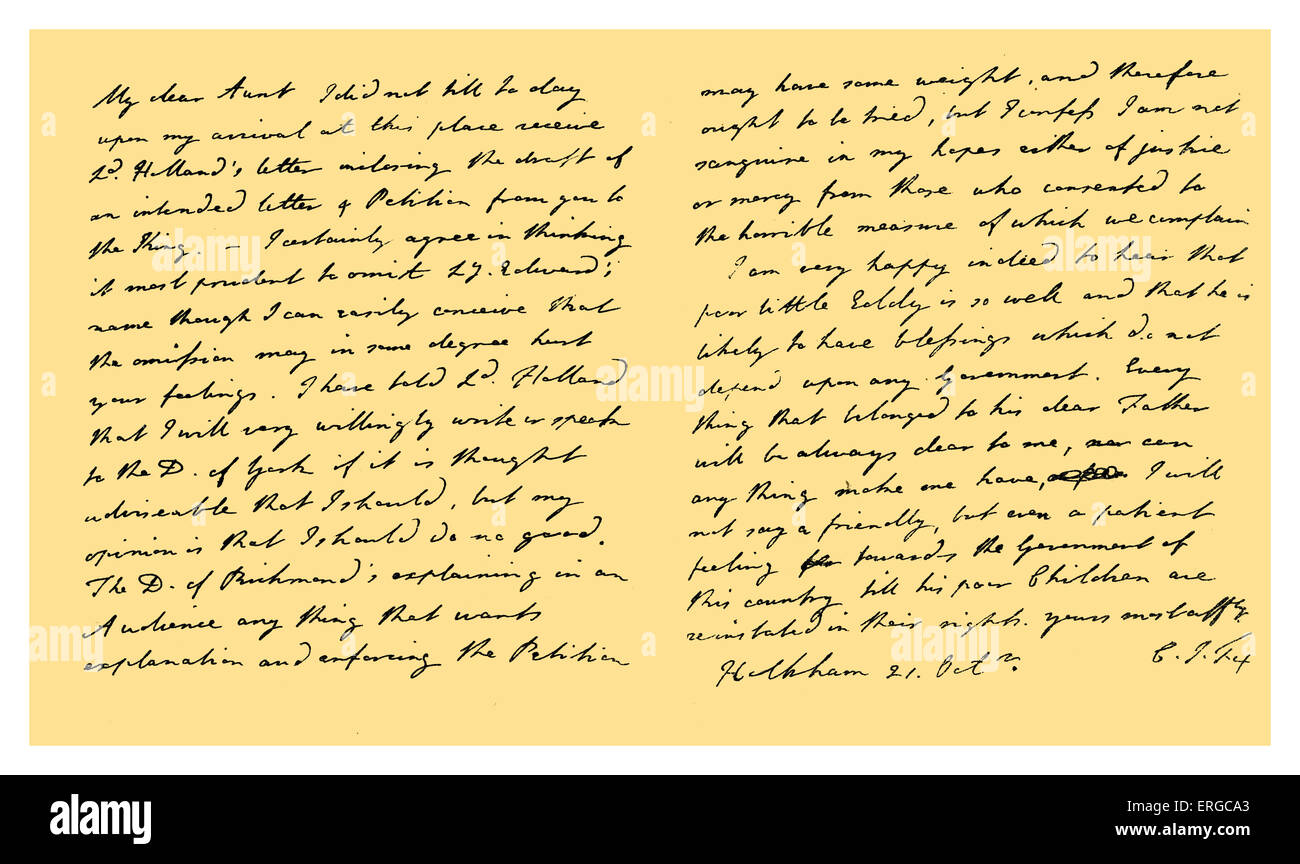 My dear Aunt I did not till to day
upon my arrival at this place receive
Ld. Holland's letter inclosing the draft of
an intended letter & Petition from you to
the King. – I certainly agree in thinking
it most prudent to omit Ld. Edward's
name though I can easily conceive that
the omission may in some degree hurt
your feelings. I have told Ld. Holland
that I will very willingly write or speak
to the D. of York if it is thought
adviseable that I should, but my
opinion is that I should do no good.
The D. of Richmond's explaining in an
Audience any thing that wants
explanation and enforcing the Petition
may have some weight, and therefore
ought to be tried, but I confess I am not
sanguine in my hopes either of justice
or mercy from those who consented to
the horrible measure of which we complain
I am very happy indeed to hear that
poor little Eddy is so well and that he is
likely to have blessings which do not
depend upon any Government. Every
thing that belonged to his dear Father
will be always dear to me, nor can
any thing make me have, I will
not say a friendly, but even a patient
feeling towards the Government of
this country till his poor Children are
reinstated in their rights. yours most affly
C. J. Fox
Holkham 21. Octr.
alamy
alamy
alamy
a
a
a
alamy
Image ID: ERGCA3
www.alamy.com